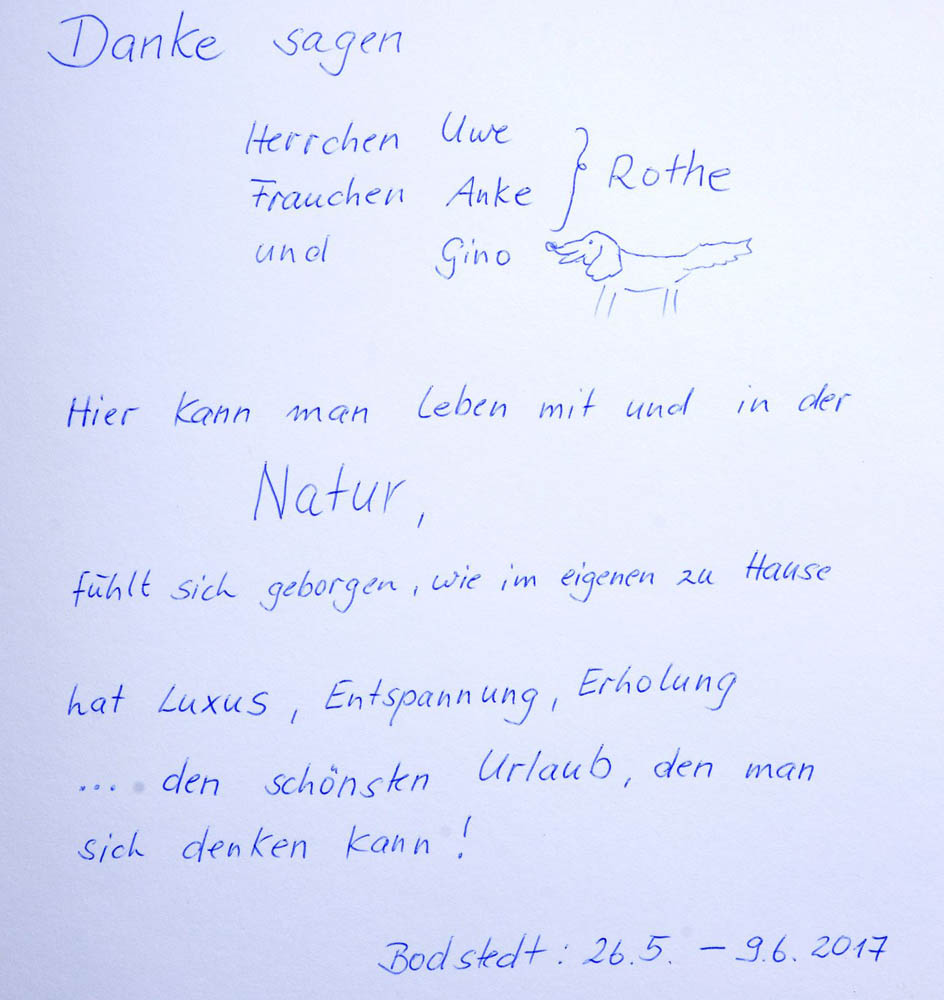 Danke sagen
Herrchen Uwe
Frauchen Anke } Rothe
und Gino
Hier kann man leben mit und in der
Natur,
fühlt sich geborgen, wie im eigenen zu Hause
hat Luxus, Entspannung, Erholung
... den schönsten Urlaub, den man
sich denken kann!
Bodstedt: 26.5. – 9.6. 2017